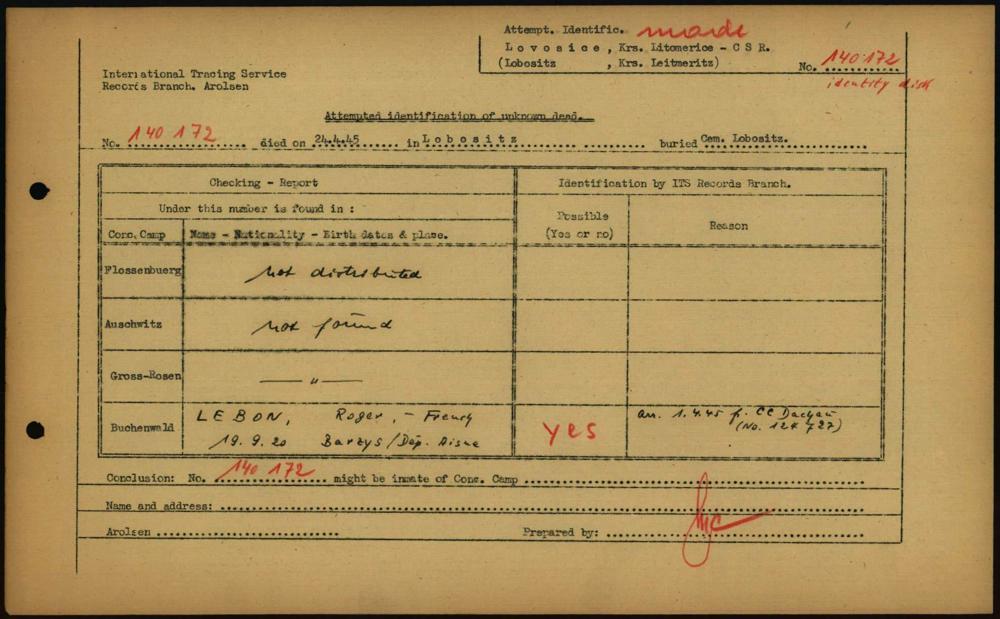 Attempt. Identific. made
Lovosice, Krs. Litomerice - CSR.
(Lobositz , Krs. Leitmeritz) No. 140 172
identity disk
International Tracing Service
Records Branch. Arolsen
Attempted identification of unknown dead.
No. 140 172 died on 24.4.45 in Lobositz buried Cem. Lobositz.
Checking - Report Identification by ITS Records Branch.
Under this number is found in :
Conc. Camp Name - Nationality - Birth dates & place. Possible (Yes or no) Reason
Flossenbuerg not distributed
Auschwitz not found
Gross-Rosen — " —
Buchenwald LEBON, Roger, - French yes arr. 1.4.45 f. CC Dachau
19.9.20 Barzys/Dep. Aisne (No. 124 727)
Conclusion: No. 140 172 might be inmate of Conc. Camp
Name and address:
Arolsen Prepared by: